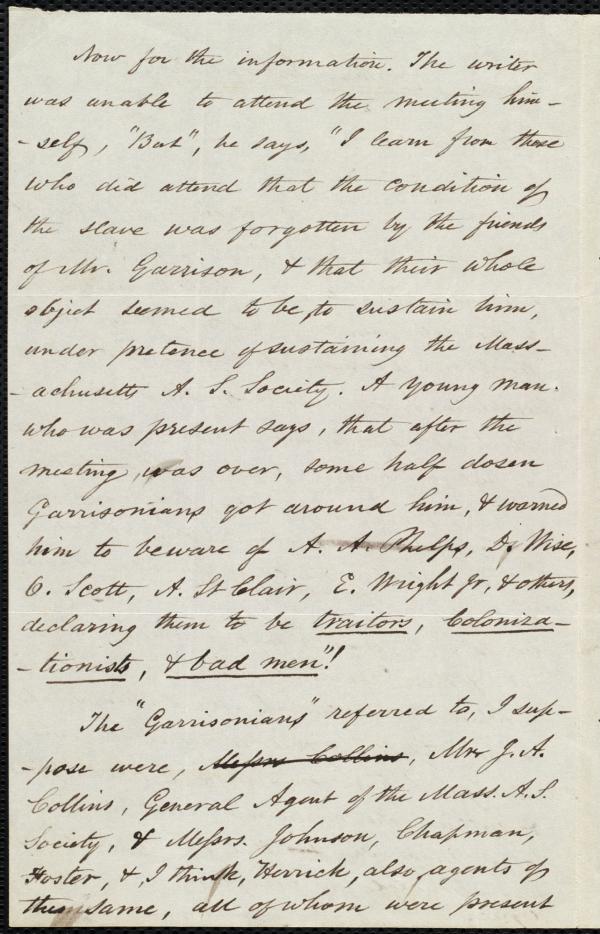 Now for the information. The writer
was unable to attend the meeting him-
-self, "But", he says, "I learn from those
who did attend that the condition of
the slave was forgotten by the friends
of Mr. Garrison, & that their whole
object seemed to be, to sustain him,
under pretence of sustaining the Mass-
-achusetts A. S. Society. A young man.
who was present says, that after the
meeting was over, some half dosen
Garrisonians got around him, & warned
him to beware of A. A. Phelps, D. Wise,
O. Scott, A. St Clair, E. Wright Jr, & others,
declaring them to be traitors, Coloniza-
-tionists, & bad men"!
The "Garrisonians" referred to, I sup-
-pose were, Messrs Collins, Mr J. A.
Collins, General Agent of the Mass. A. S.
Society, & Messrs. Johnson, Chapman,
Foster, &, I think, Herrick, also agents of
the same, all of whom were present